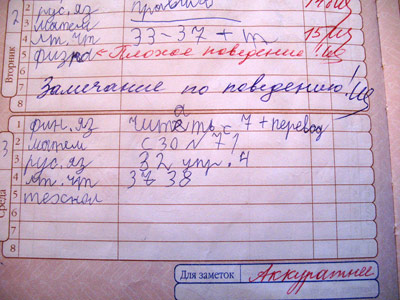 2 рус. яз
3 матем
4 лт. чт 33-37 + т 15
Вторник 5 физра ← Плохое поведение!
6
7 Замечание по поведению!
8
1 фин. яз читать с 7 + перевод
2 матем с 30 № 71
3 рус. яз 32 упр. 4
4 лт. чт 37 38
Среда 5 технол
6
7
8
Для заметок Аккуратнее